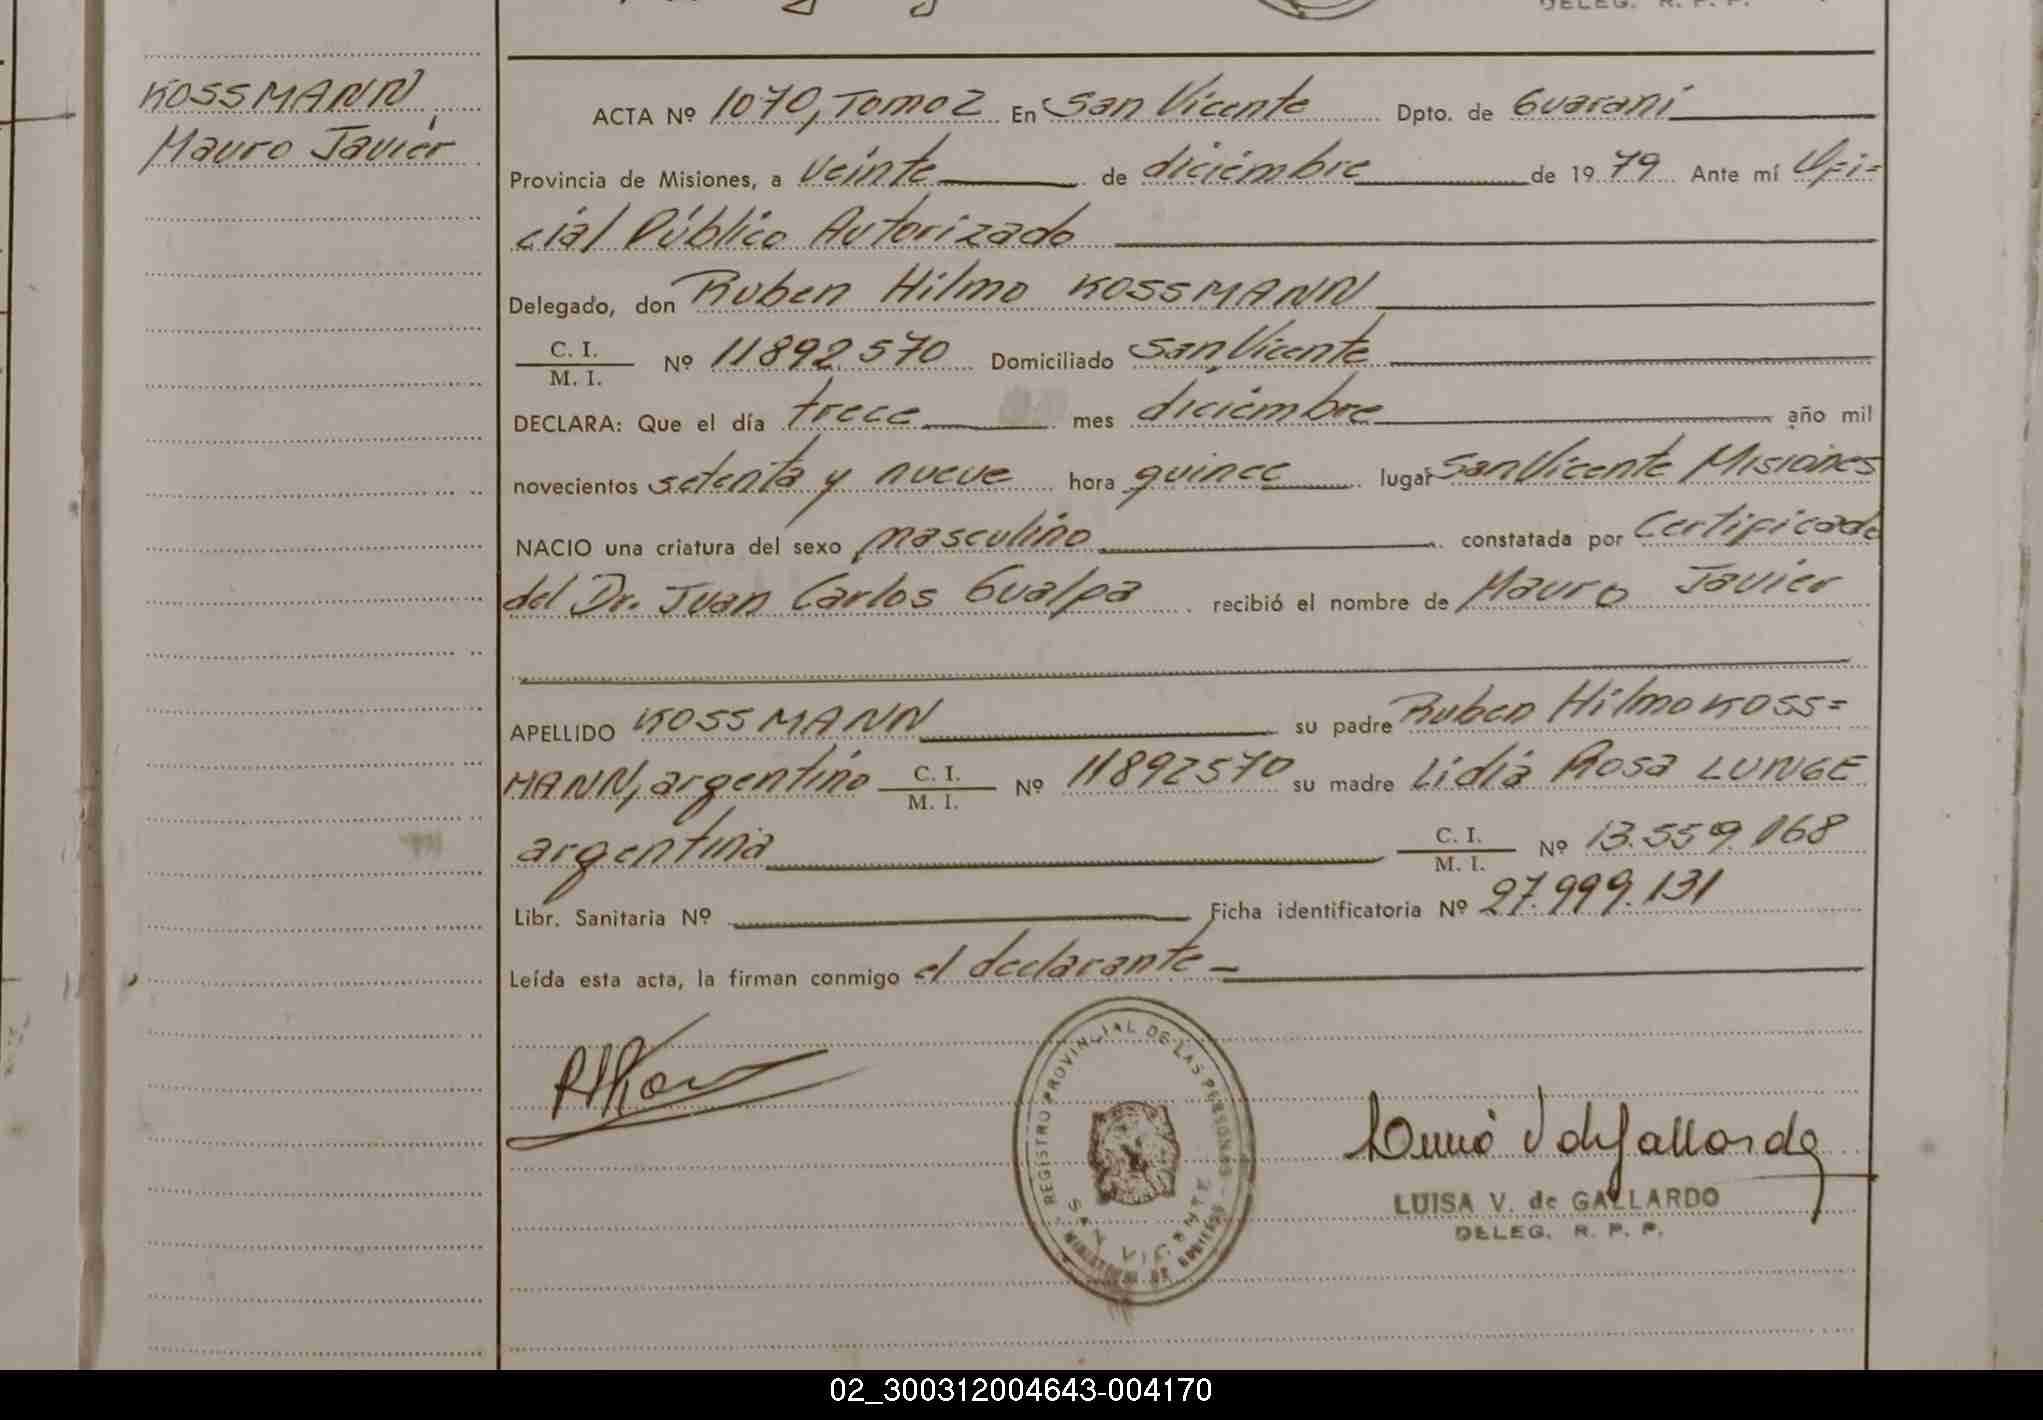 DELEG. R. P. P.
KOSSMANN,
Mauro Javier
ACTA Nº 1070, Tomo 2 En San Vicente Dpto. de Guaraní
Provincia de Misiones, a veinte de diciembre de 19 79 Ante mí Ofi=
cial Público Autorizado
Delegado, don Ruben Hilmo KOSSMANN
C. I.
M. I. Nº 11892570 Domiciliado San Vicente
DECLARA: Que el día trece mes diciembre año mil
novecientos setenta y nueve hora quince lugar San Vicente Misiones
NACIO una criatura del sexo masculino constatada por Certificado
del Dr. Juan Carlos Gualpa recibió el nombre de Mauro Javier
APELLIDO KOSSMANN su padre Ruben Hilmo KOSS=
MANN, argentino C. I. M. I. Nº 11892570 su madre Lidia Rosa LUNGE
argentina C. I. M. I. Nº 13.559.168
Libr. Sanitaria Nº Ficha identificatoria Nº 27.999.131
Leída esta acta, la firman conmigo el declarante
REGISTRO PROVINCIAL DE LAS PERSONAS
SAN VICENTE
MINISTERIO DE GOBIERNO
LUISA V. de GALLARDO
DELEG. R. P. P.
02_300312004643-004170